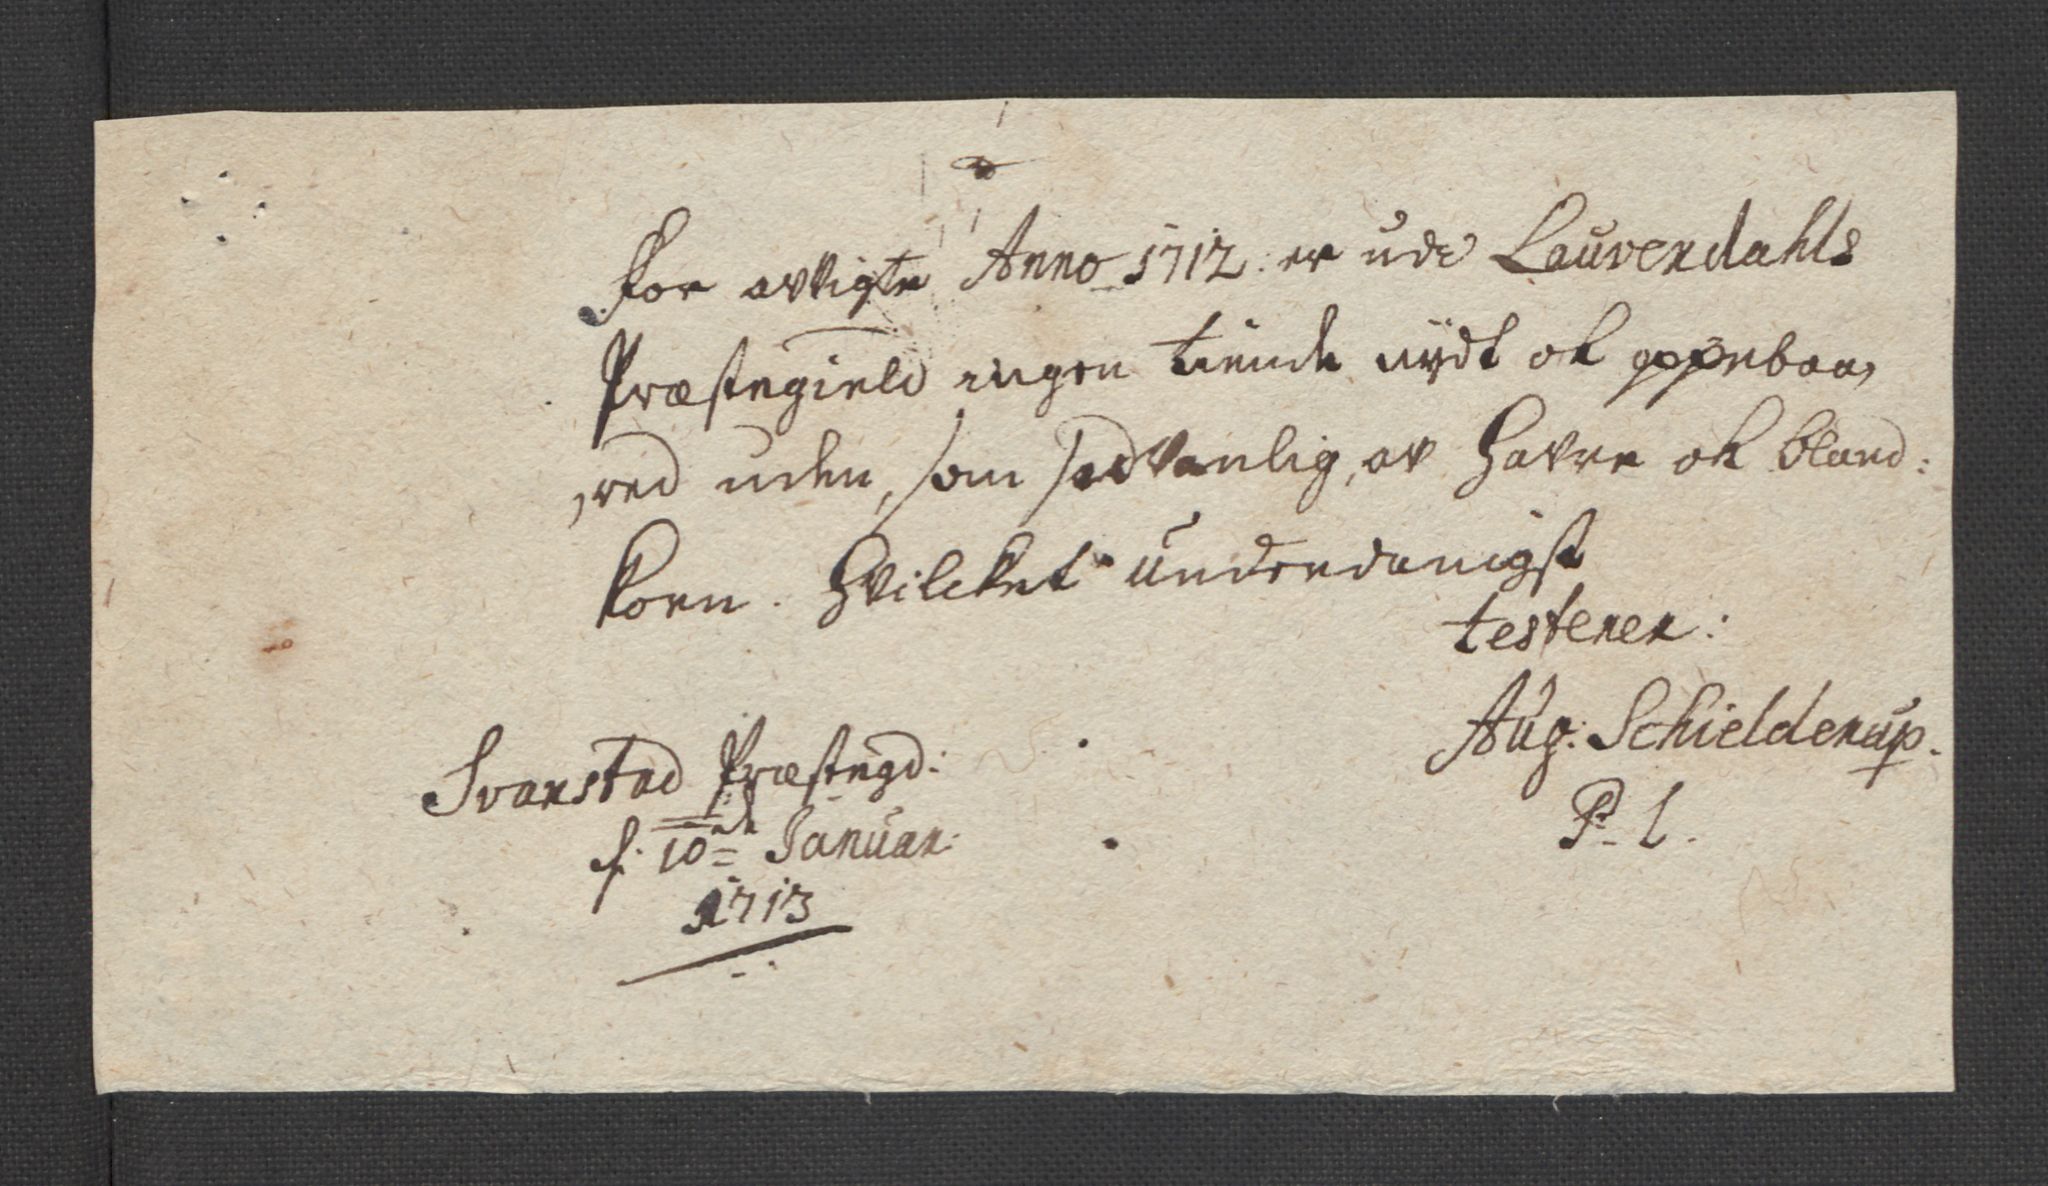 For avvigte Anno 1712. er udi Laurerdahls
Præstegield ingen tiende nÿdt ok oppebaa,
,red uden, som sædvanlig, av Havre ok bland:
korn. Hvilcket underdanigst
testerer:
Aug: Schielderup.
P. l.
Svarstad Præstegd:
d. 10de Januar:
1713